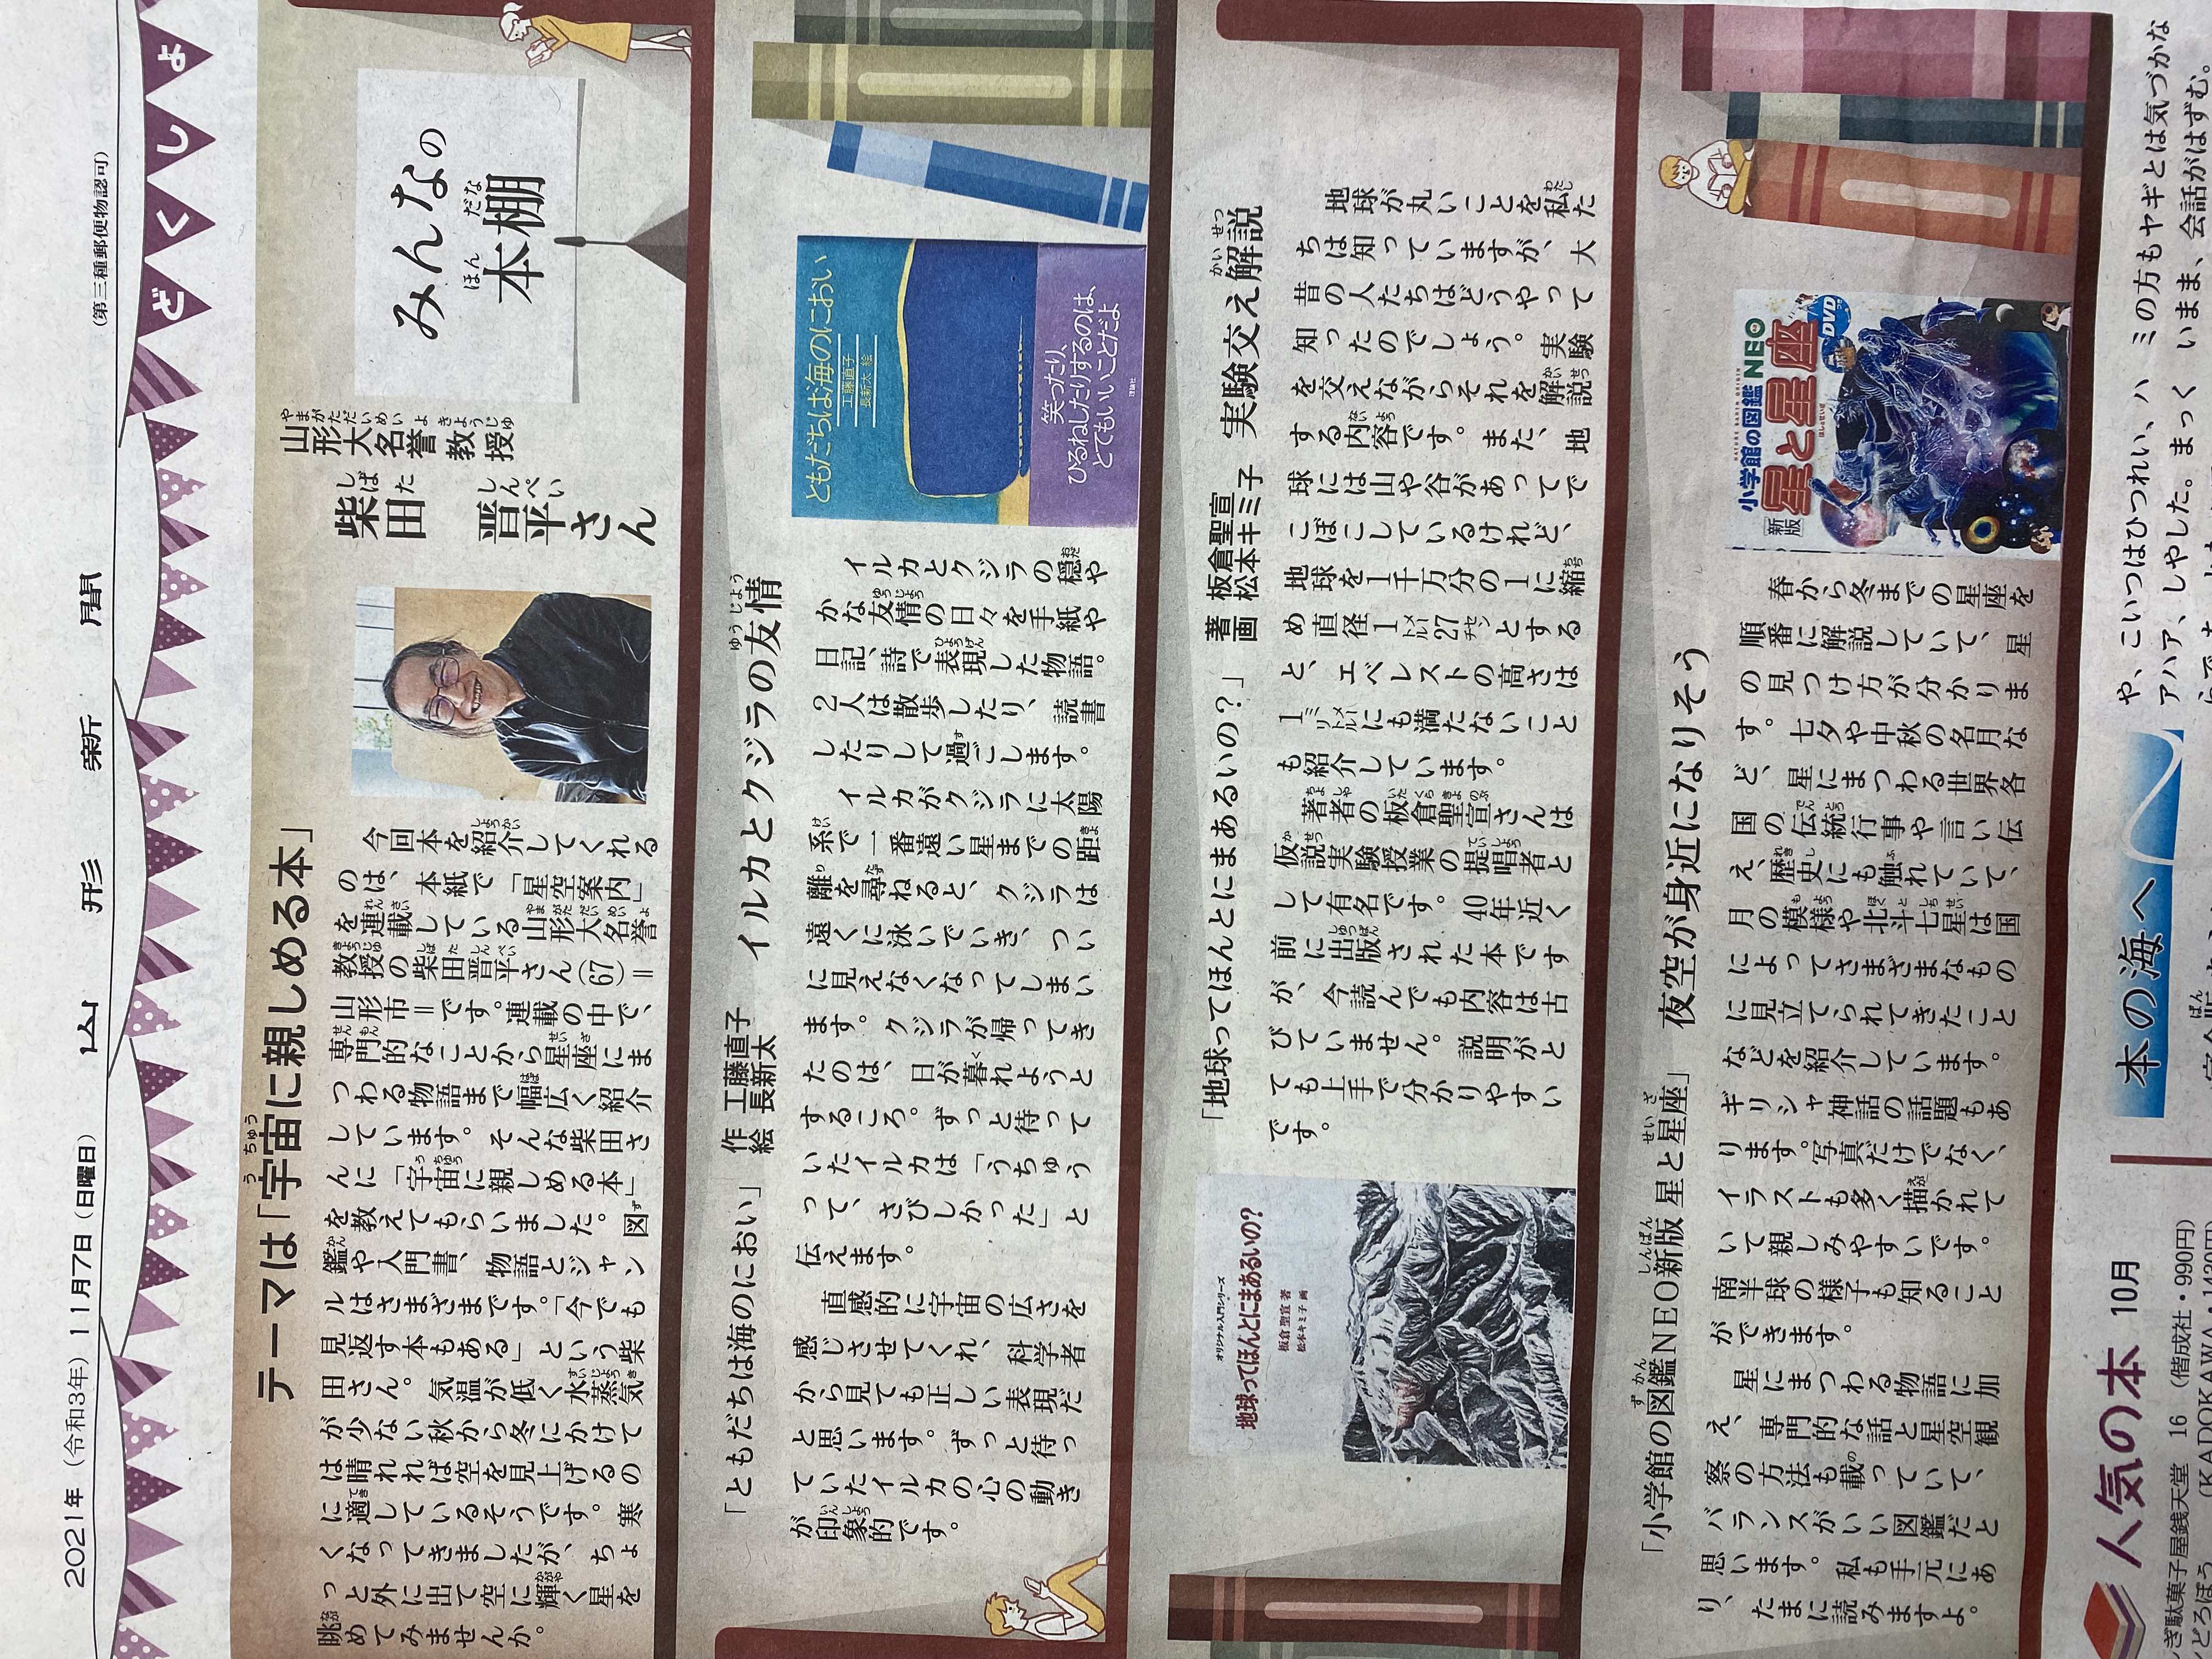 2021年（令和3年）11月7日（日曜日）
山形新聞
（第三種郵便物認可）
どくしょ
みんなの
本棚
ほんだな
山形大名誉教授
やまがただいめいよきょうじゅ
柴田 晋平さん
しばた しんぺい
テーマは「宇宙に親しめる本」
うちゅう
今回本を紹介してくれる
のは、本紙で「星空案内」
を連載している山形大名誉
教授の柴田晋平さん(67)＝
山形市＝です。連載の中で、
専門的なことから星座にま
つわる物語まで幅広く紹介
しています。そんな柴田さ
んに「宇宙に親しめる本」
を教えてもらいました。図
鑑や入門書、物語とジャン
ルはさまざまです。「今でも
見返す本もある」という柴
田さん。気温が低く水蒸気
が少ない秋から冬にかけて
は晴れれば空を見上げるの
に適しているそうです。寒
くなってきましたが、ちょ
っと外に出て空に輝く星を
眺めてみませんか。
「ともだちは海のにおい」
作 工藤直子
絵 長新太
イルカとクジラの友情
ゆうじょう
ともだちは海のにおい
工藤直子
長新太 絵
笑ったり、
ひるねしたりするのは、
とてもいいことだよ
理論社
イルカとクジラの穏や
かな友情の日々を手紙や
日記、詩で表現した物語。
2人は散歩したり、読書
したりして過ごします。
イルカがクジラに太陽
系で一番遠い星までの距
離を尋ねると、クジラは
遠くに泳いでいき、つい
に見えなくなってしまい
ます。クジラが帰ってき
たのは、日が暮れようと
するころ。ずっと待って
いたイルカは「うちゅう
って、さびしかった」と
伝えます。
直感的に宇宙の広さを
感じさせてくれ、科学者
から見ても正しい表現だ
と思います。ずっと待っ
ていたイルカの心の動き
が印象的です。
「地球ってほんとにまあるいの？」
著 板倉聖宣
画 松本キミ子
実験交え解説
かいせつ
地球が丸いことを私た
ちは知っていますが、大
昔の人たちはどうやって
知ったのでしょう。実験
を交えながらそれを解説
する内容です。また、地
球には山や谷があってで
こぼこしているけれど、
地球を1千万分の1に縮
め直径1メートル27センチとする
と、エベレストの高さは
1ミリメートルにも満たないこと
も紹介しています。
著者の板倉聖宣さんは
仮説実験授業の提唱者と
して有名です。40年近く
前に出版された本です
が、今読んでも内容は古
びていません。説明がと
ても上手で分かりやすい
です。
オリジナル入門シリーズ
地球ってほんとにまあるいの？
板倉聖宣 著
松本キミ子 画
「小学館の図鑑NEO新版 星と星座」
ずかん しんぱん せいざ
夜空が身近になりそう
小学館の図鑑NEO
新版
星と星座
DVD
春から冬までの星座を
順番に解説していて、星
の見つけ方が分かりま
す。七夕や中秋の名月な
ど、星にまつわる世界各
国の伝統行事や言い伝
え、歴史にも触れていて、
月の模様や北斗七星は国
によってさまざまなもの
に見立てられてきたこと
などを紹介しています。
ギリシャ神話の話題もあ
ります。写真だけでなく、
イラストも多く描かれて
いて親しみやすいです。
南半球の様子も知ること
ができます。
星にまつわる物語に加
え、専門的な話と星空観
察の方法も載っていて、
バランスがいい図鑑だと
思います。私も手元にあ
り、たまに読みますよ。
人気の本 10月
ぎ駄菓子屋銭天堂 16（偕成社・990円）
どろぼう（KADOKAWA・1430円）
本の海へ
ミの方もヤギとは気づかな
いまま、会話がはずむ。
や、こいつはひつれい、ハ
アハア、しやした。まっく